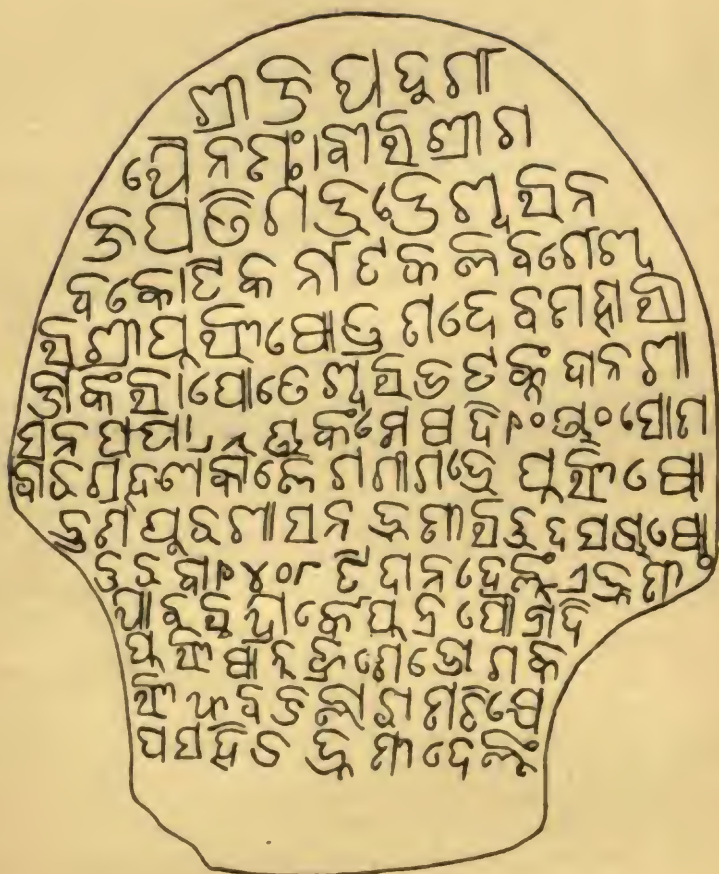 ଶ୍ରୀ ଜୟ ଦୁର୍ଗା
ୟୈ ନମଃ। ବୀର ଶ୍ରୀ ଗ
ଜପତି ଗଉଡେଶ୍ୱର ନ
ବକୋଟି କର୍ନାଟ କଲବର୍ଗେଶ୍ୱ
ର ଶ୍ରୀପୁରୁଷୋତ୍ତମଦେବ ମହାରା
ଜାଙ୍କର। ପୋତେଶ୍ୱର ଭଟଙ୍କୁ ଦାନ ଶା
ସନ ପଟା। ଅଙ୍କ ମେଷ ଦି ୧୦ ଅଂ ସୋମ
ବାର ଗ୍ରହଣ କାଲେ ଗଙ୍ଗାଗର୍ଭେ ପୁରୁଷୋ
ତମପୁର ଶାସନ ଭୂମୀ ଚଉଦଶଅଷ୍ଟୋ
ତର ବା ୧୪୦୮ ଟି ଦାନ ଦେଲୁଁ ଏ ଭୂମୀ
ଯାବଚନ୍ଦ୍ରାର୍କେ ପୁତ୍ର ପୌତ୍ରାଦି
ପୁରୁଷାନୁକ୍ରମେ ଭୋଗ କ
ରୁଥିବ ଜଲାରାମ ନିକ୍ଷେ
ପ ସହିତ ଭୂମୀ ଦେଲୁଁ